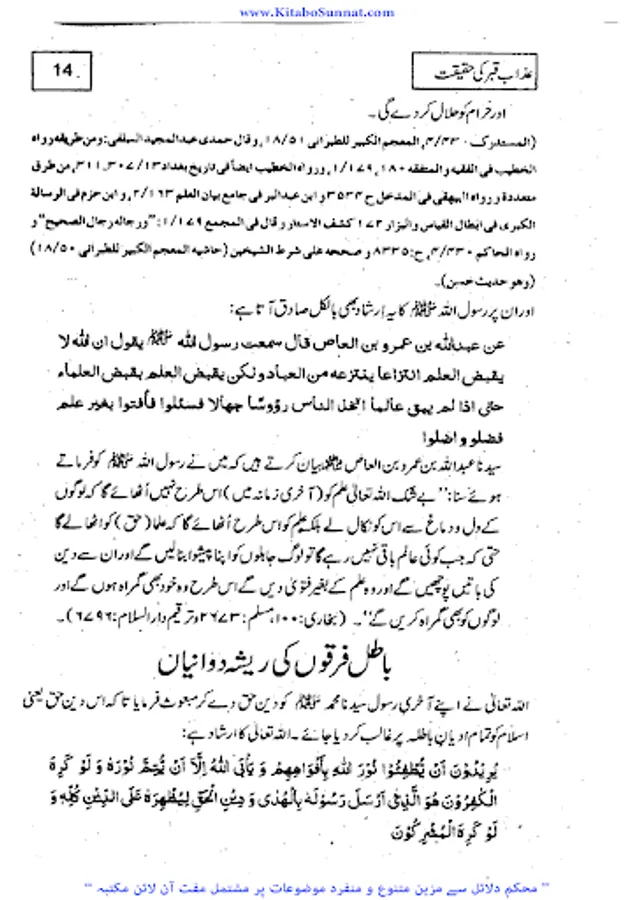 www.KitaboSunnat.com
عذاب قبر کی حقیقت
14
اور حرام کو حلال کر دے گی۔
(المستدرک ۴/۴۳۰، المعجم الکبیر للطبرانی ۱۸/۵۱، وقال حمدی عبدالمجید السلفی: ومن طریقه رواه
الخطیب فی الفقیه و المتفقه ۱/۱۷۹،۱۸۰، ورواه الخطیب ایضاً فی تاریخ بغداد ۱۳/۳۰۷، ۳۱۱، من طرق
متعددة و رواه البیهقی فی المدخل ح ۳۵۳۴ و ابن عبدالبر فی جامع بیان العلم ۲/۱۶۳، و ابن حزم فی الرسالة
الکبری فی ابطال القیاس والبزار ۱۷۲ کشف الاستار و قال فی المجمع ۱/۱۷۹: "ورجاله رجال الصحیح" و
رواه الحاکم ۴/۴۳۰، ح: ۸۳۳۵ و صححه علی شرط الشیخین (حاشیه المعجم الکبیر للطبرانی ۱۸/۵۰)
(وهو حدیث حسن)۔
اور ان پر رسول اللہ ﷺ کا یہ ارشاد بھی بالکل صادق آتا ہے:
عن عبدالله بن عمرو بن العاص قال سمعت رسول الله ﷺ یقول ان الله لا
یقبض العلم انتزاعا ینتزعه من العباد ولکن یقبض العلم بقبض العلماء
حتی اذا لم یبق عالماً اتخذ الناس رؤوسًا جهالا فسئلوا فأفتوا بغیر علم
فضلو و اضلوا
سیدنا عبداللہ بن عمرو بن العاص رضی اللہ عنہ بیان کرتے ہیں کہ میں نے رسول اللہ ﷺ کو فرماتے
ہوئے سنا: "بے شک اللہ تعالیٰ علم کو (آخری زمانہ میں) اس طرح نہیں اُٹھائے گا کہ لوگوں
کے دل و دماغ سے اس کو نکال لے بلکہ علم کو اس طرح اُٹھائے گا کہ علما (حق) کو اٹھا لے گا
حتی کہ جب کوئی عالم باقی نہیں رہے گا تو لوگ جاہلوں کو اپنا پیشوا بنا لیں گے اور ان سے دین
کی باتیں پوچھیں گے اور وہ علم کے بغیر فتویٰ دیں گے اس طرح وہ خود بھی گمراہ ہوں گے اور
لوگوں کو بھی گمراہ کریں گے"۔ (بخاری: ۱۰۰، مسلم: ۲۶۷۳ و ترقیم دار السلام: ۶۷۹۶)۔
باطل فرقوں کی ریشہ دوانیاں
اللہ تعالیٰ نے اپنے آخری رسول سیدنا محمد ﷺ کو دین حق دے کر مبعوث فرمایا تا کہ اس دین حق یعنی
اسلام کو تمام ادیان باطلہ پر غالب کر دیا جائے۔ اللہ تعالیٰ کا ارشاد ہے:
یُرِیْدُوْنَ اَنْ یُّطْفِئُوْا نُوْرَ اللهِ بِاَفْوَاهِهِمْ وَ یَاْبَی اللهُ اِلَّآ اَنْ یُّتِمَّ نُوْرَهٗ وَ لَوْ كَرِهَ
الْكٰفِرُوْنَ هُوَ الَّذِیْٓ اَرْسَلَ رَسُوْلَهٗ بِالْهُدٰی وَ دِیْنِ الْحَقِّ لِیُظْهِرَهٗ عَلَی الدِّیْنِ كُلِّهٖ وَ
لَوْ كَرِهَ الْمُشْرِكُوْنَ
" محکم دلائل سے مزین متنوع و منفرد موضوعات پر مشتمل مفت آن لائن مکتبہ "